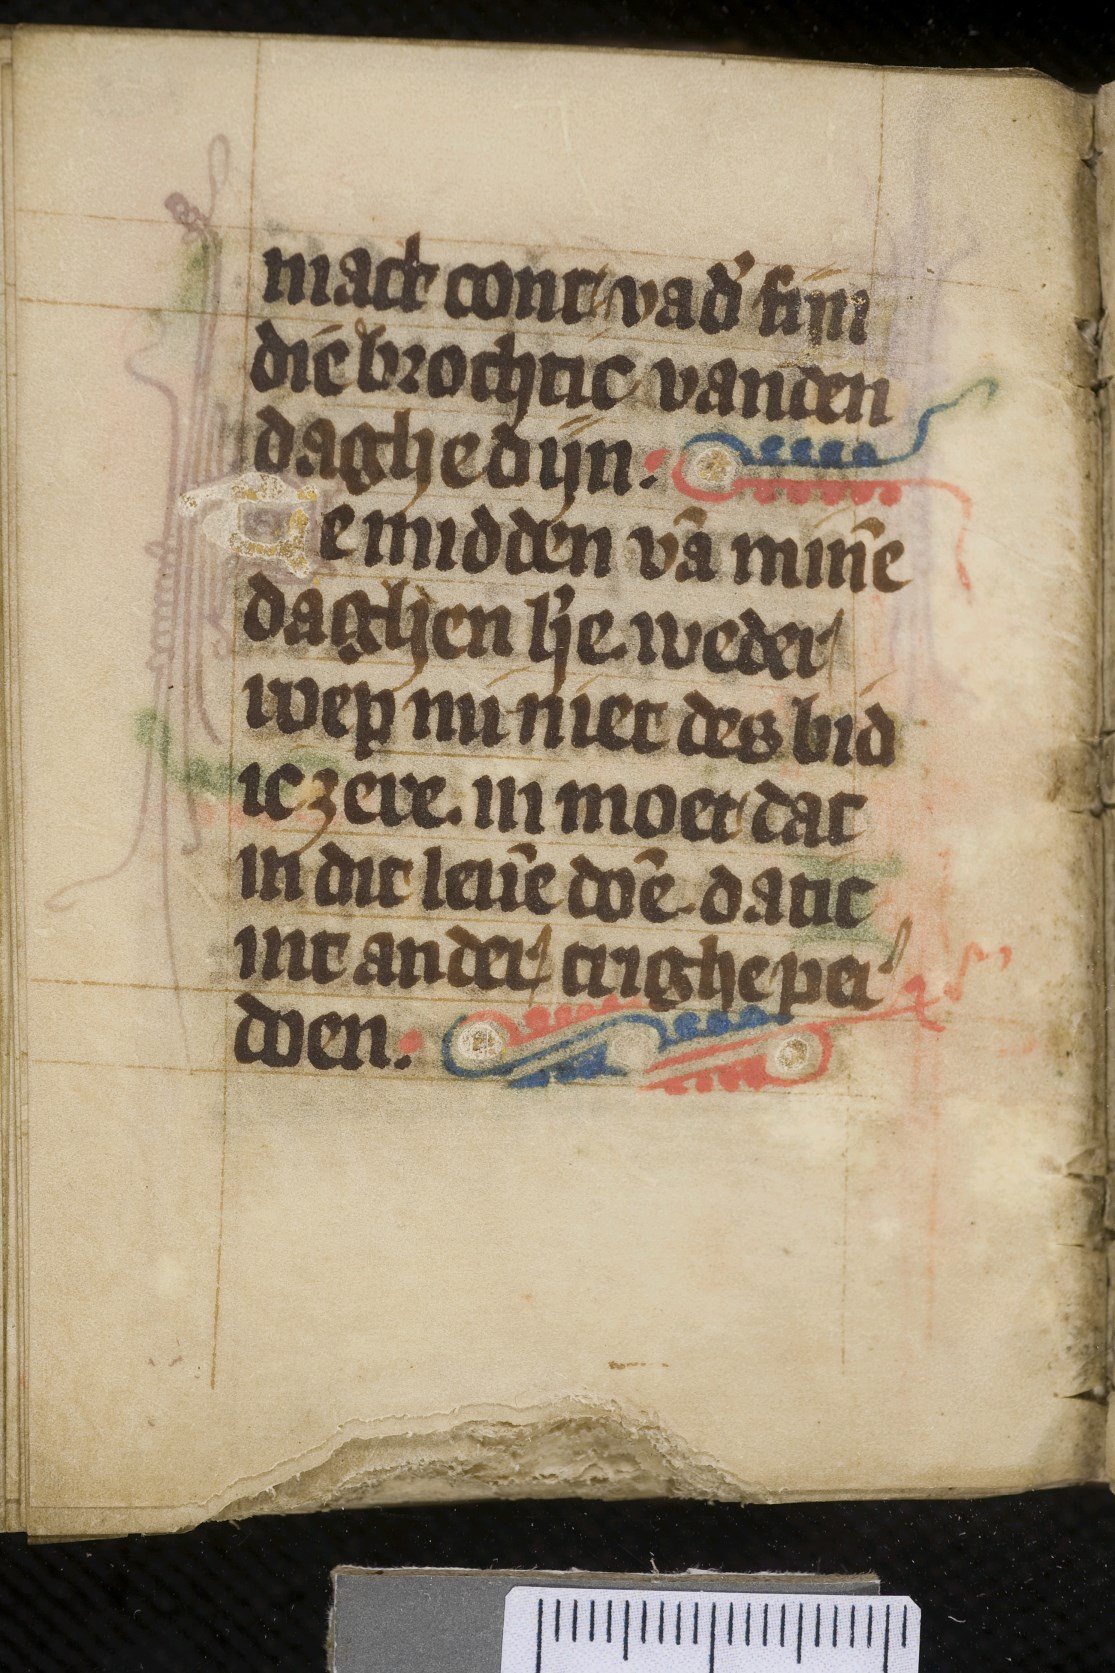 mact cont vad' sijn
die brochtic vanden
daghe dijn.
Te midden vā minē
daghen h'e. weder
wep nu niet des bid
ic zere. in moet dat
in dit leuē doē datic
int ander crighe per
doen.